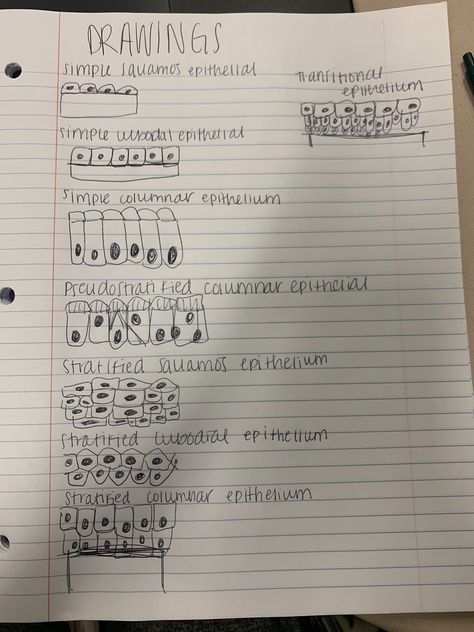 DRAWINGS
simple squamos epithelial
Transitional
epithelium
simple cubodal epithelial
simple columnar epithelium
Pseudostratified columnar epithelial
Stratified squamos epithelium
stratified cubodial epithelium
Stratified columnar epithelium